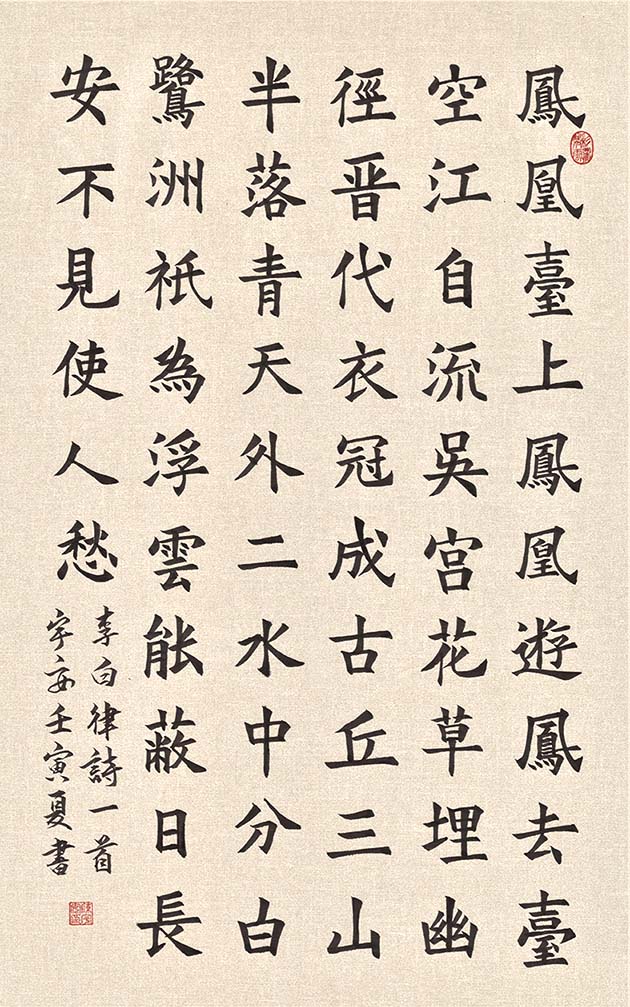 鳳凰臺上鳳凰遊鳳去臺
空江自流吳宮花草埋幽
徑晋代衣冠成古丘三山
半落青天外二水中分白
鷺洲祇為浮雲能蔽日長
安不見使人愁
李白律詩一首
宇安壬寅夏書